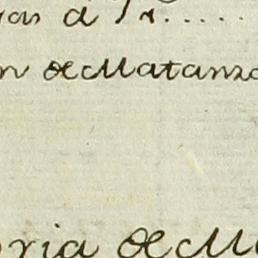 yas á Pr......
n de Matanza
oria de M